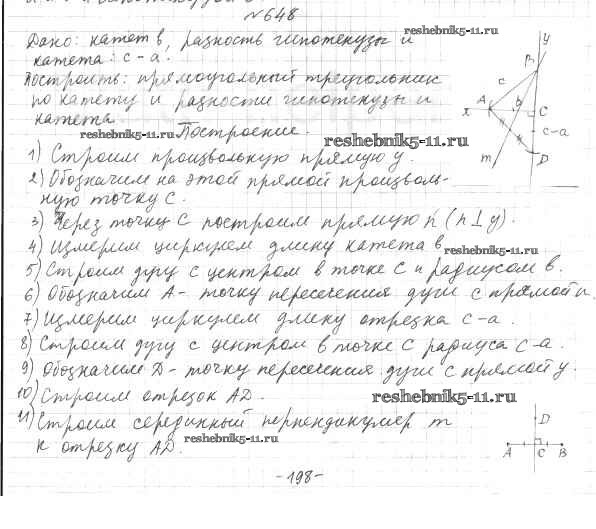 №648
reshebnik5-11.ru
Дано: катет в, разность гипотенузы и
катета: с-а.
Построить: прямоугольный треугольник
по катету и разности гипотенузы и
катета.
reshebnik5-11.ru
Построение.
reshebnik5-11.ru
y
B
c
A
x
b
C
c-a
m
D
1) Строим произвольную прямую y.
2) Обозначим на этой прямой произволь-
ную точку С.
3) Через точку С построим прямую n (n⊥y).
4) Измерим циркулем длину катета в
reshebnik5-11.ru
5) Строим дугу с центром в точке С и радиусом в.
6) Обозначим А- точку пересечения дуги с прямой n.
7) Измерим циркулем длину отрезка с-а.
8) Строим дугу с центром в точке С радиуса с-а.
9) Обозначим D- точку пересечения дуги с прямой y.
10) Строим отрезок AD.
reshebnik5-11.ru
11) Строим серединный перпендикуляр m
к отрезку AD.
reshebnik5-11.ru
D
A
C
B
-198-